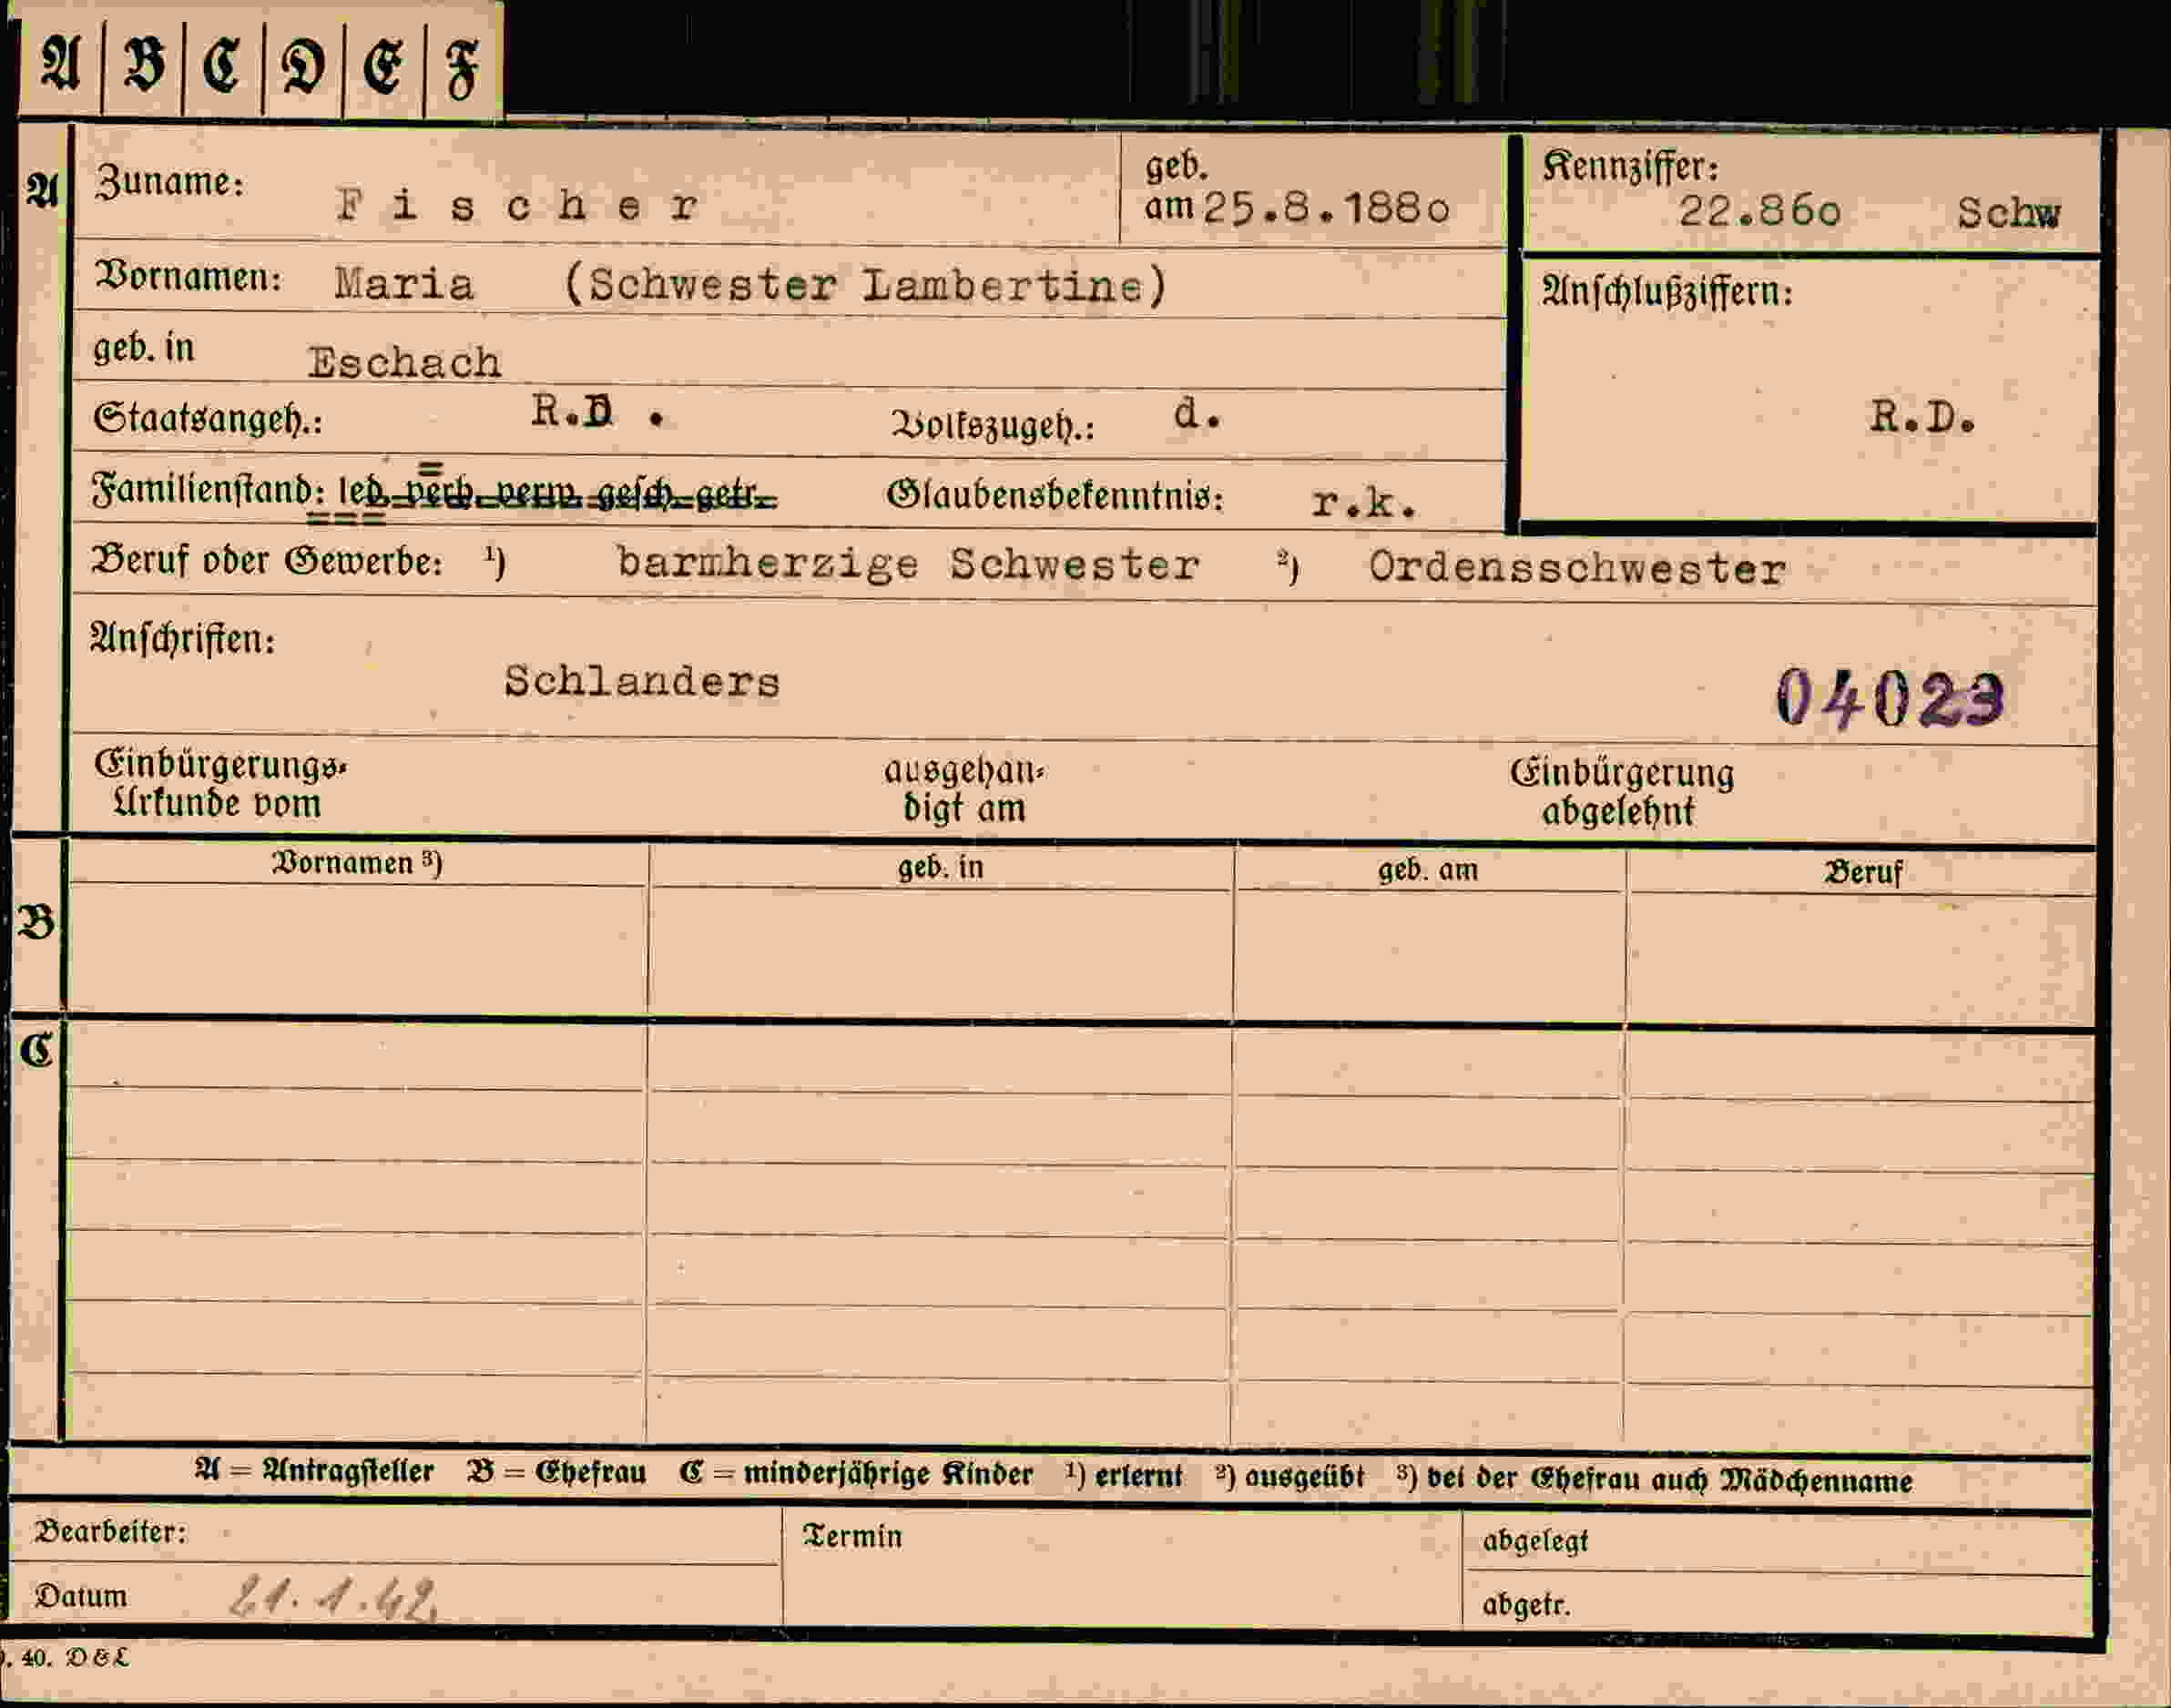 A B C D E F
A Zuname: Fischer geb. am 25.8.1880 Kennziffer: 22.860 Schw
Vornamen: Maria (Schwester Lambertine) Anschlußziffern:
geb. in Eschach
Staatsangeh.: R.D. Volkszugeh.: d. R.D.
Familienstand: led. verh. verw. gesch. getr. Glaubensbekenntnis: r.k.
Beruf oder Gewerbe: ¹) barmherzige Schwester ²) Ordensschwester
Anschriften:
Schlanders 04023
Einbürgerungs- ausgehan- Einbürgerung
Urkunde vom digt am abgelehnt
Vornamen ³) geb. in geb. am Beruf
B
C
A = Antragsteller B = Ehefrau C = minderjährige Kinder ¹) erlernt ²) ausgeübt ³) bei der Ehefrau auch Mädchenname
Bearbeiter: Termin abgelegt
Datum 21.1.42. abgetr.
. 40. D & L